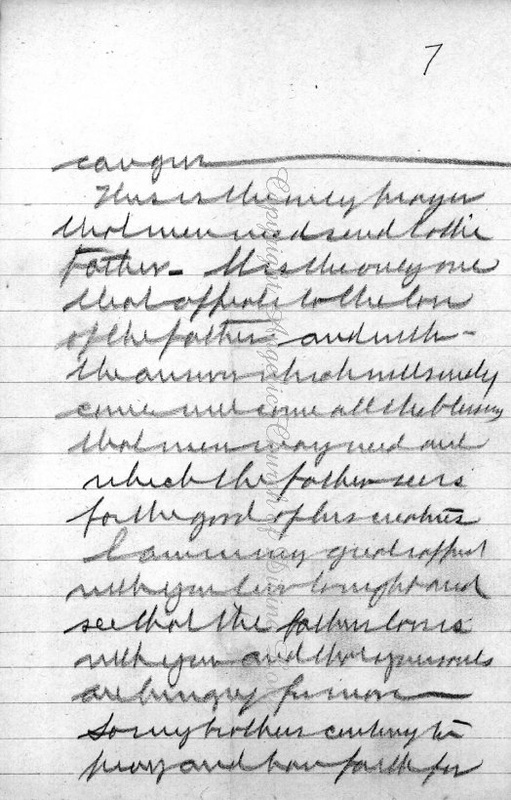 7
can give
This is the only prayer
that men need send to the
Father - It is the only one
that appeals to the love
of the father and with
the answer which will surely
come will come all the blessings
that men may need and
which the father sees is
for the good of his creatures
I am in very great rapport
with you two tonight and
see that the fathers love is
with you and that your souls
are hungry for more
So my brothers continue to
pray and have faith for